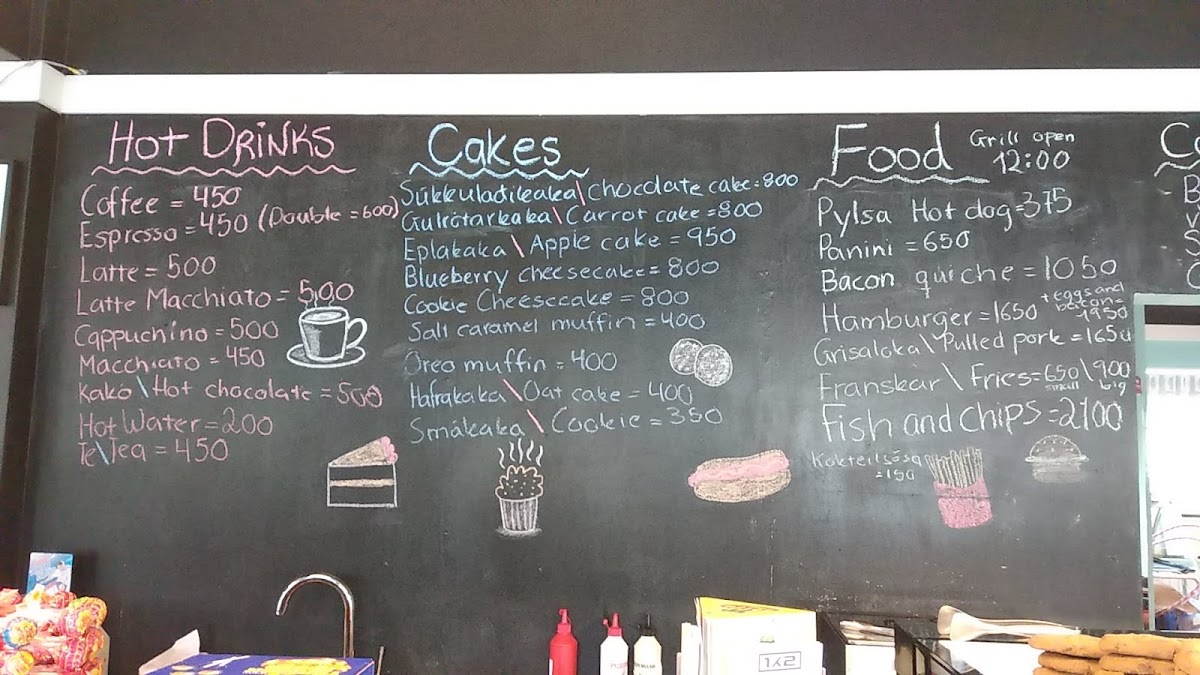 Hot DRiNKS
Coffee = 450
Espresso = 450 (Double = 600)
Latte = 500
Latte Macchiato = 500
Cappuchino = 500
Macchiato = 450
Kakó \ Hot chocolate = 500
Hot Water = 200
Te \ Tea = 450
Cakes
Súkkuladikaka \ chocolate cake = 800
Gulrótarkaka \ Carrot cake = 800
Eplakaka \ Apple cake = 950
Blueberry cheesecake = 800
Cookie Cheesecake = 800
Salt caramel muffin = 400
Oreo muffin = 400
Hafrakaka \ Oat cake = 400
Smákaka \ Cookie = 350
Food
Grill open
12:00
Pylsa Hot dog = 375
Panini = 650
Bacon quiche = 1050
Hamburger = 1650 + eggs and
bacon =
1950
Grísaloka \ Pulled pork = 1650
Franskar \ Fries = 650 \ 900
small big
Fish and chips = 2100
Kokteilsósa
= 190